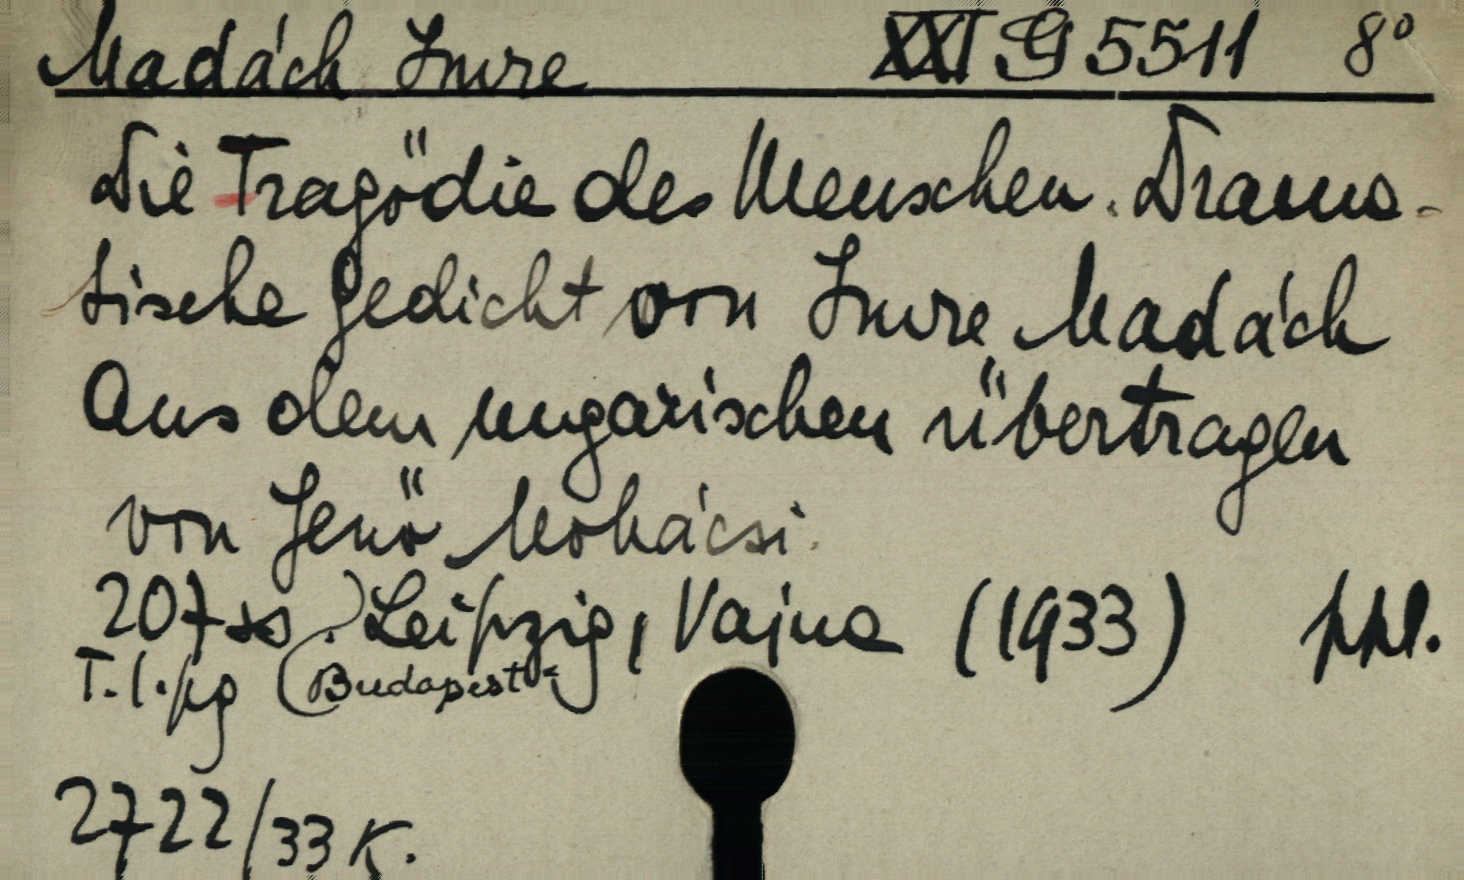 Madách Imre XXI G 5511 8°
Die Tragödie des Menschen. Drama-
tische Gedicht von Imre Madách
Aus dem ungarischen übertragen
von Jenö Mohácsi.
207 ss. Leipzig, Vajna (1933) ppl.
T. l. jg (Budapest
2722/33 K.